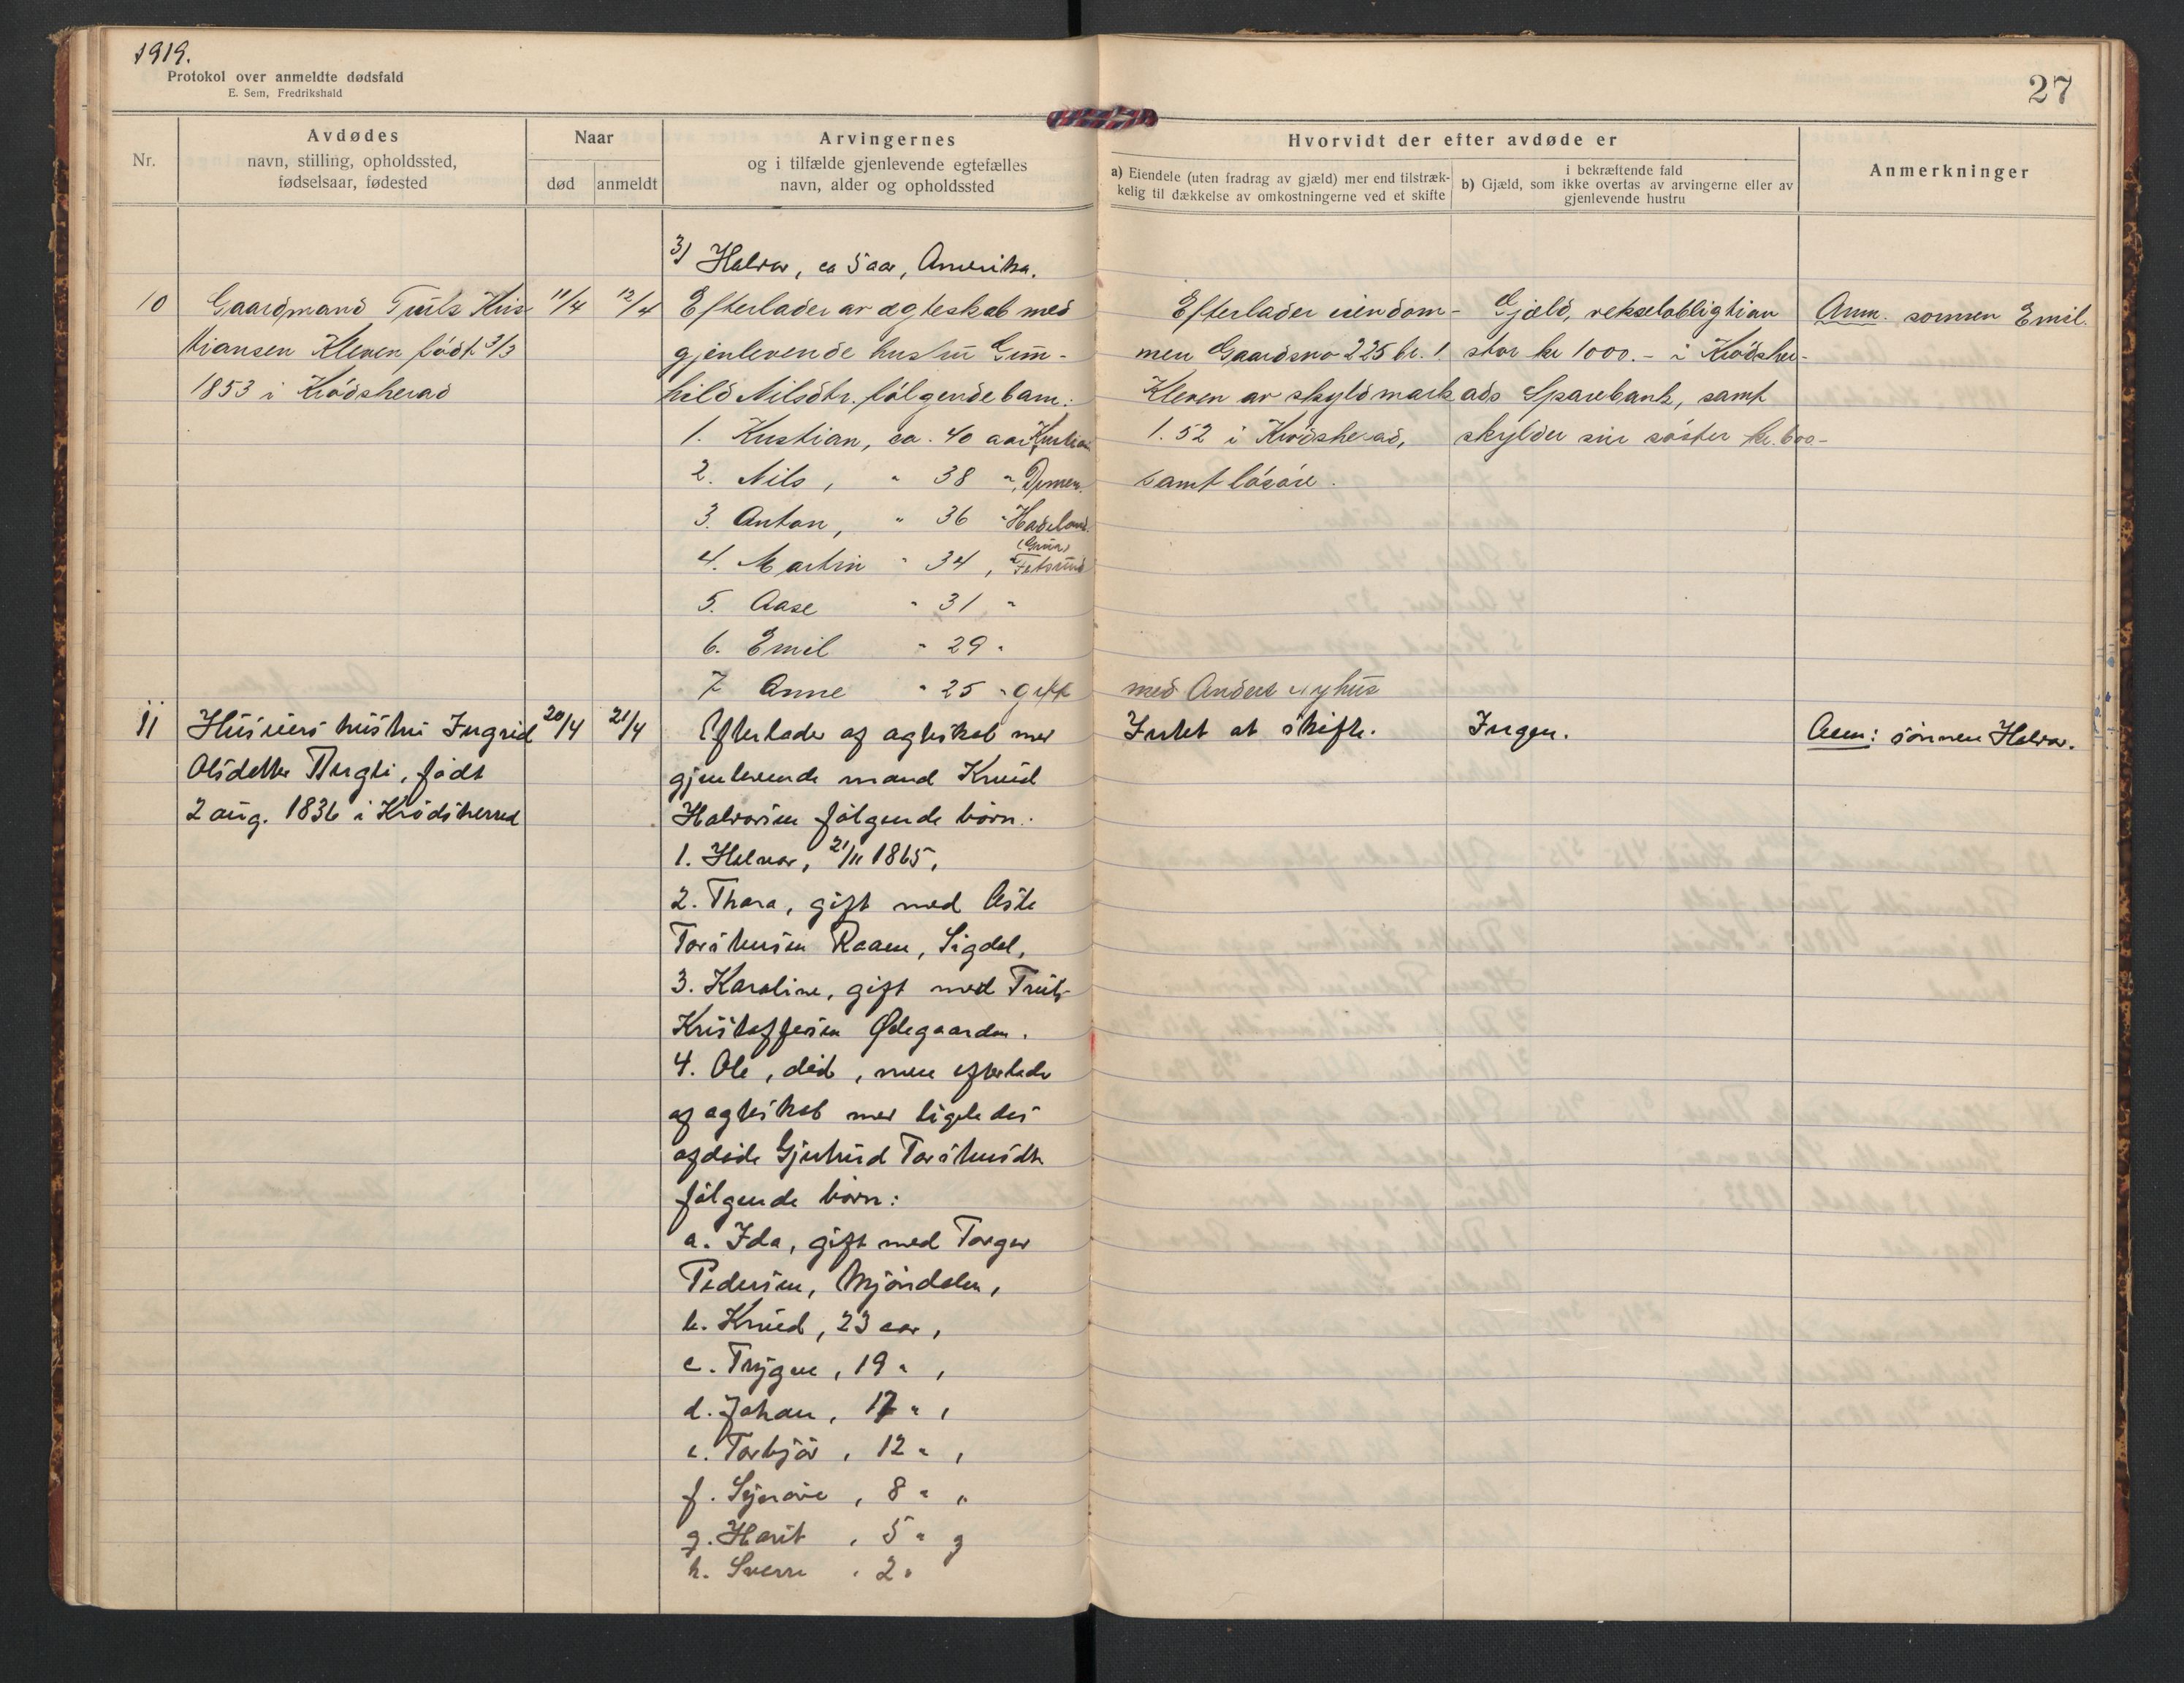 1919.
Protokol over anmeldte dødsfald
E. Sem, Fredrikshald
27
Nr.
Avdødes
navn, stilling, opholdssted,
fødselsaar, fødested
Naar
død
anmeldt
Arvingernes
og i tilfælde gjenlevende egtefælles
navn, alder og opholdssted
Hvorvidt der efter avdøde er
a) Eiendele (uten fradrag av gjæld) mer end tilstræk-
kelig til dækkelse av omkostningerne ved et skifte
i bekræftende fald
b) Gjæld, som ikke overtas av arvingerne eller av
gjenlevende hustru
Anmerkninger
3) Halvor, ca 5 aar, Amerika.
10
Gaardmand Truls Kris
tiansen Kleven født 3/3
1853 i Krødsherad
11/4
12/4
Efterlader av egteskab med
gjenlevende hustru Gun-
hild Nilsdtr. følgende barn:
1. Kristian, ca. 40 aar Kristian
2. Nils, " 38 ", Dmen.
3. Anton, " 36 " Hadeland.
4. Martin " 34, Fetsund
5. Aase " 31 "
6. Emil " 29 "
7 Anne " 25 " gift
med Anders Nyhus
Efterlader eiendom-
men Gaardsno 225 br. 1.
Kleven av skyld mark
1.52 i Krødsherad,
samt løsøre.
Gjæld, vekselobligtion
stor kr 1000.- i Krødsher-
ads Sparebank, samt
skylder sin søster kr. 600-
Anm. sønnen Emil.
11
Huseiers hustru Ingrid
Olsdatter Thugli, født
2 aug. 1836 i Krødsherred
20/4
21/4
Efterlader af ægteskab med
gjenlevende mand Knud
Halvorsen følgende børn:
1. Halvor, 21/11 1865,
2. Thora, gift med Aste
Torstensen Raaen, Sigdal,
3. Karoline, gift med Truls
Kristoffersen Ødegaarden.
4. Ole, død, men efterlader
af ægteskab med ligeledes
afdøde Gjertrud Torstensdtr
følgende børn:
a. Ida, gift med Torger
Pedersen, Mjøndalen,
b. Knud, 23 aar,
c. Trygve, 19 ",
d. Johan, 17 ",
e. Torbjør, 12 ",
f. Signøve, 8 " "
g. Harit, 5 "
h. Sverre, 2 "
Intet at skifte.
Ingen.
Anm: sønnen Halvor.